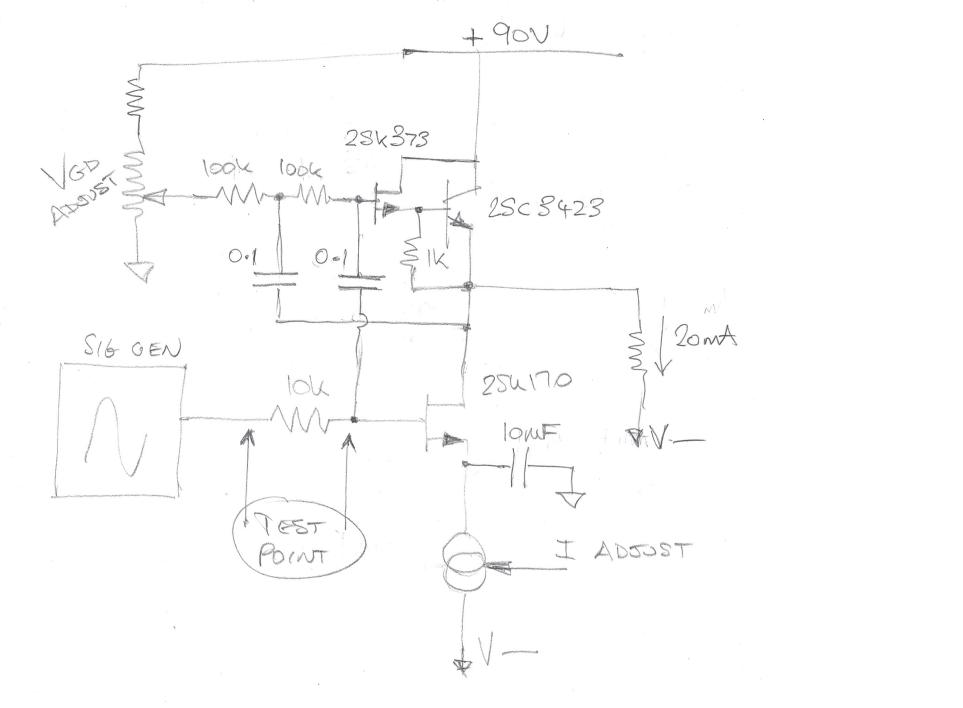 + 90V
2SK373
VGD
ADJUST
100k 100k
2SC3423
0.1 0.1 1k
20mA
SIG GEN
10k
2SK170
10µF
V—
TEST
POINT
I ADJUST
V—